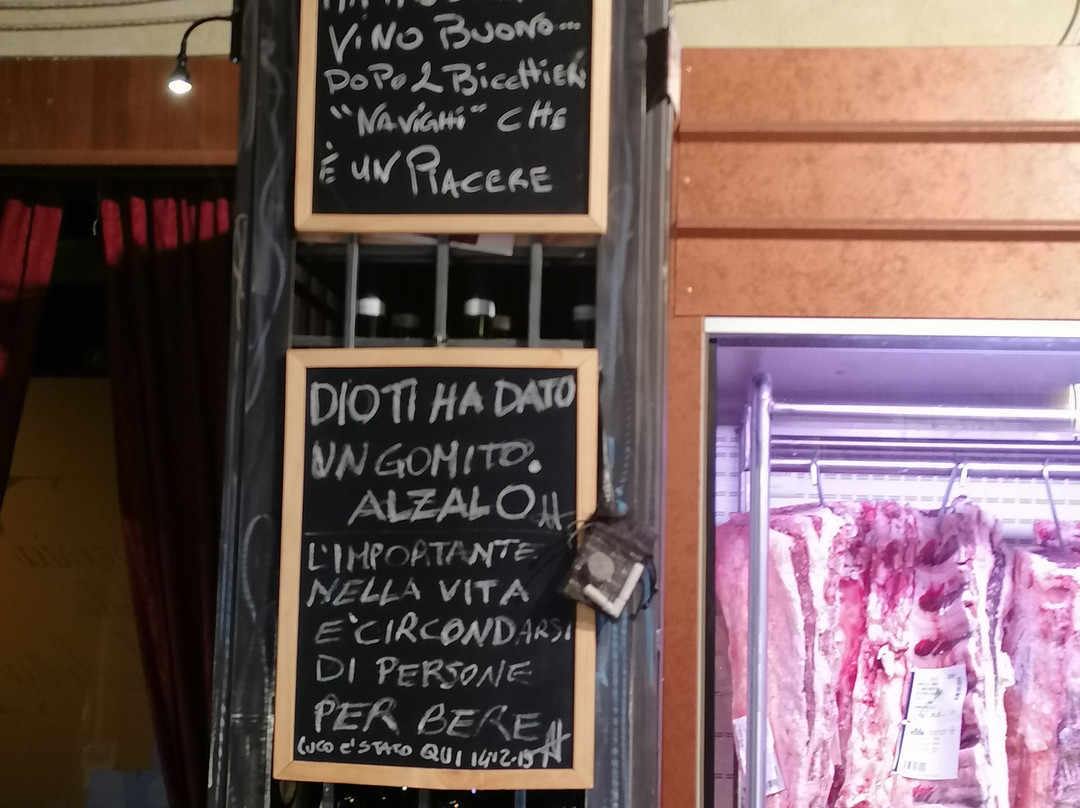 VINO BUONO...
DOPO 2 BICCHIERI
"NAVIGHI" CHE
È UN PIACERE
DIO TI HA DATO
UN GOMITO.
ALZALO
L'IMPORTANTE
NELLA VITA
E' CIRCONDARSI
DI PERSONE
PER BERE
E' STATO QUI 14-12-19